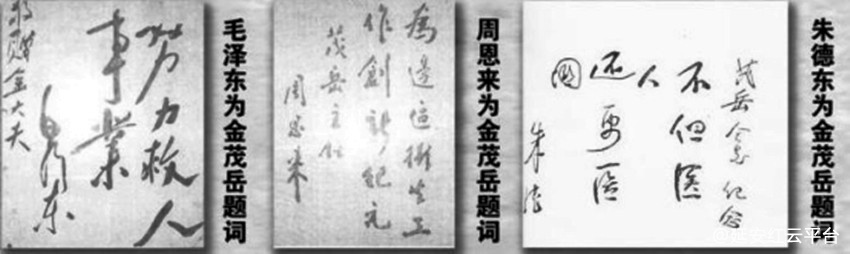 努力救人
事業
毛澤东
赠金大夫
毛泽东为金茂岳题词
為邊區衛生工
作創新紀元
茂岳主任
周恩来
周恩来为金茂岳题词
茂岳同志纪念
不但医
人
还要医
国
朱德
朱德东为金茂岳题词
云平台